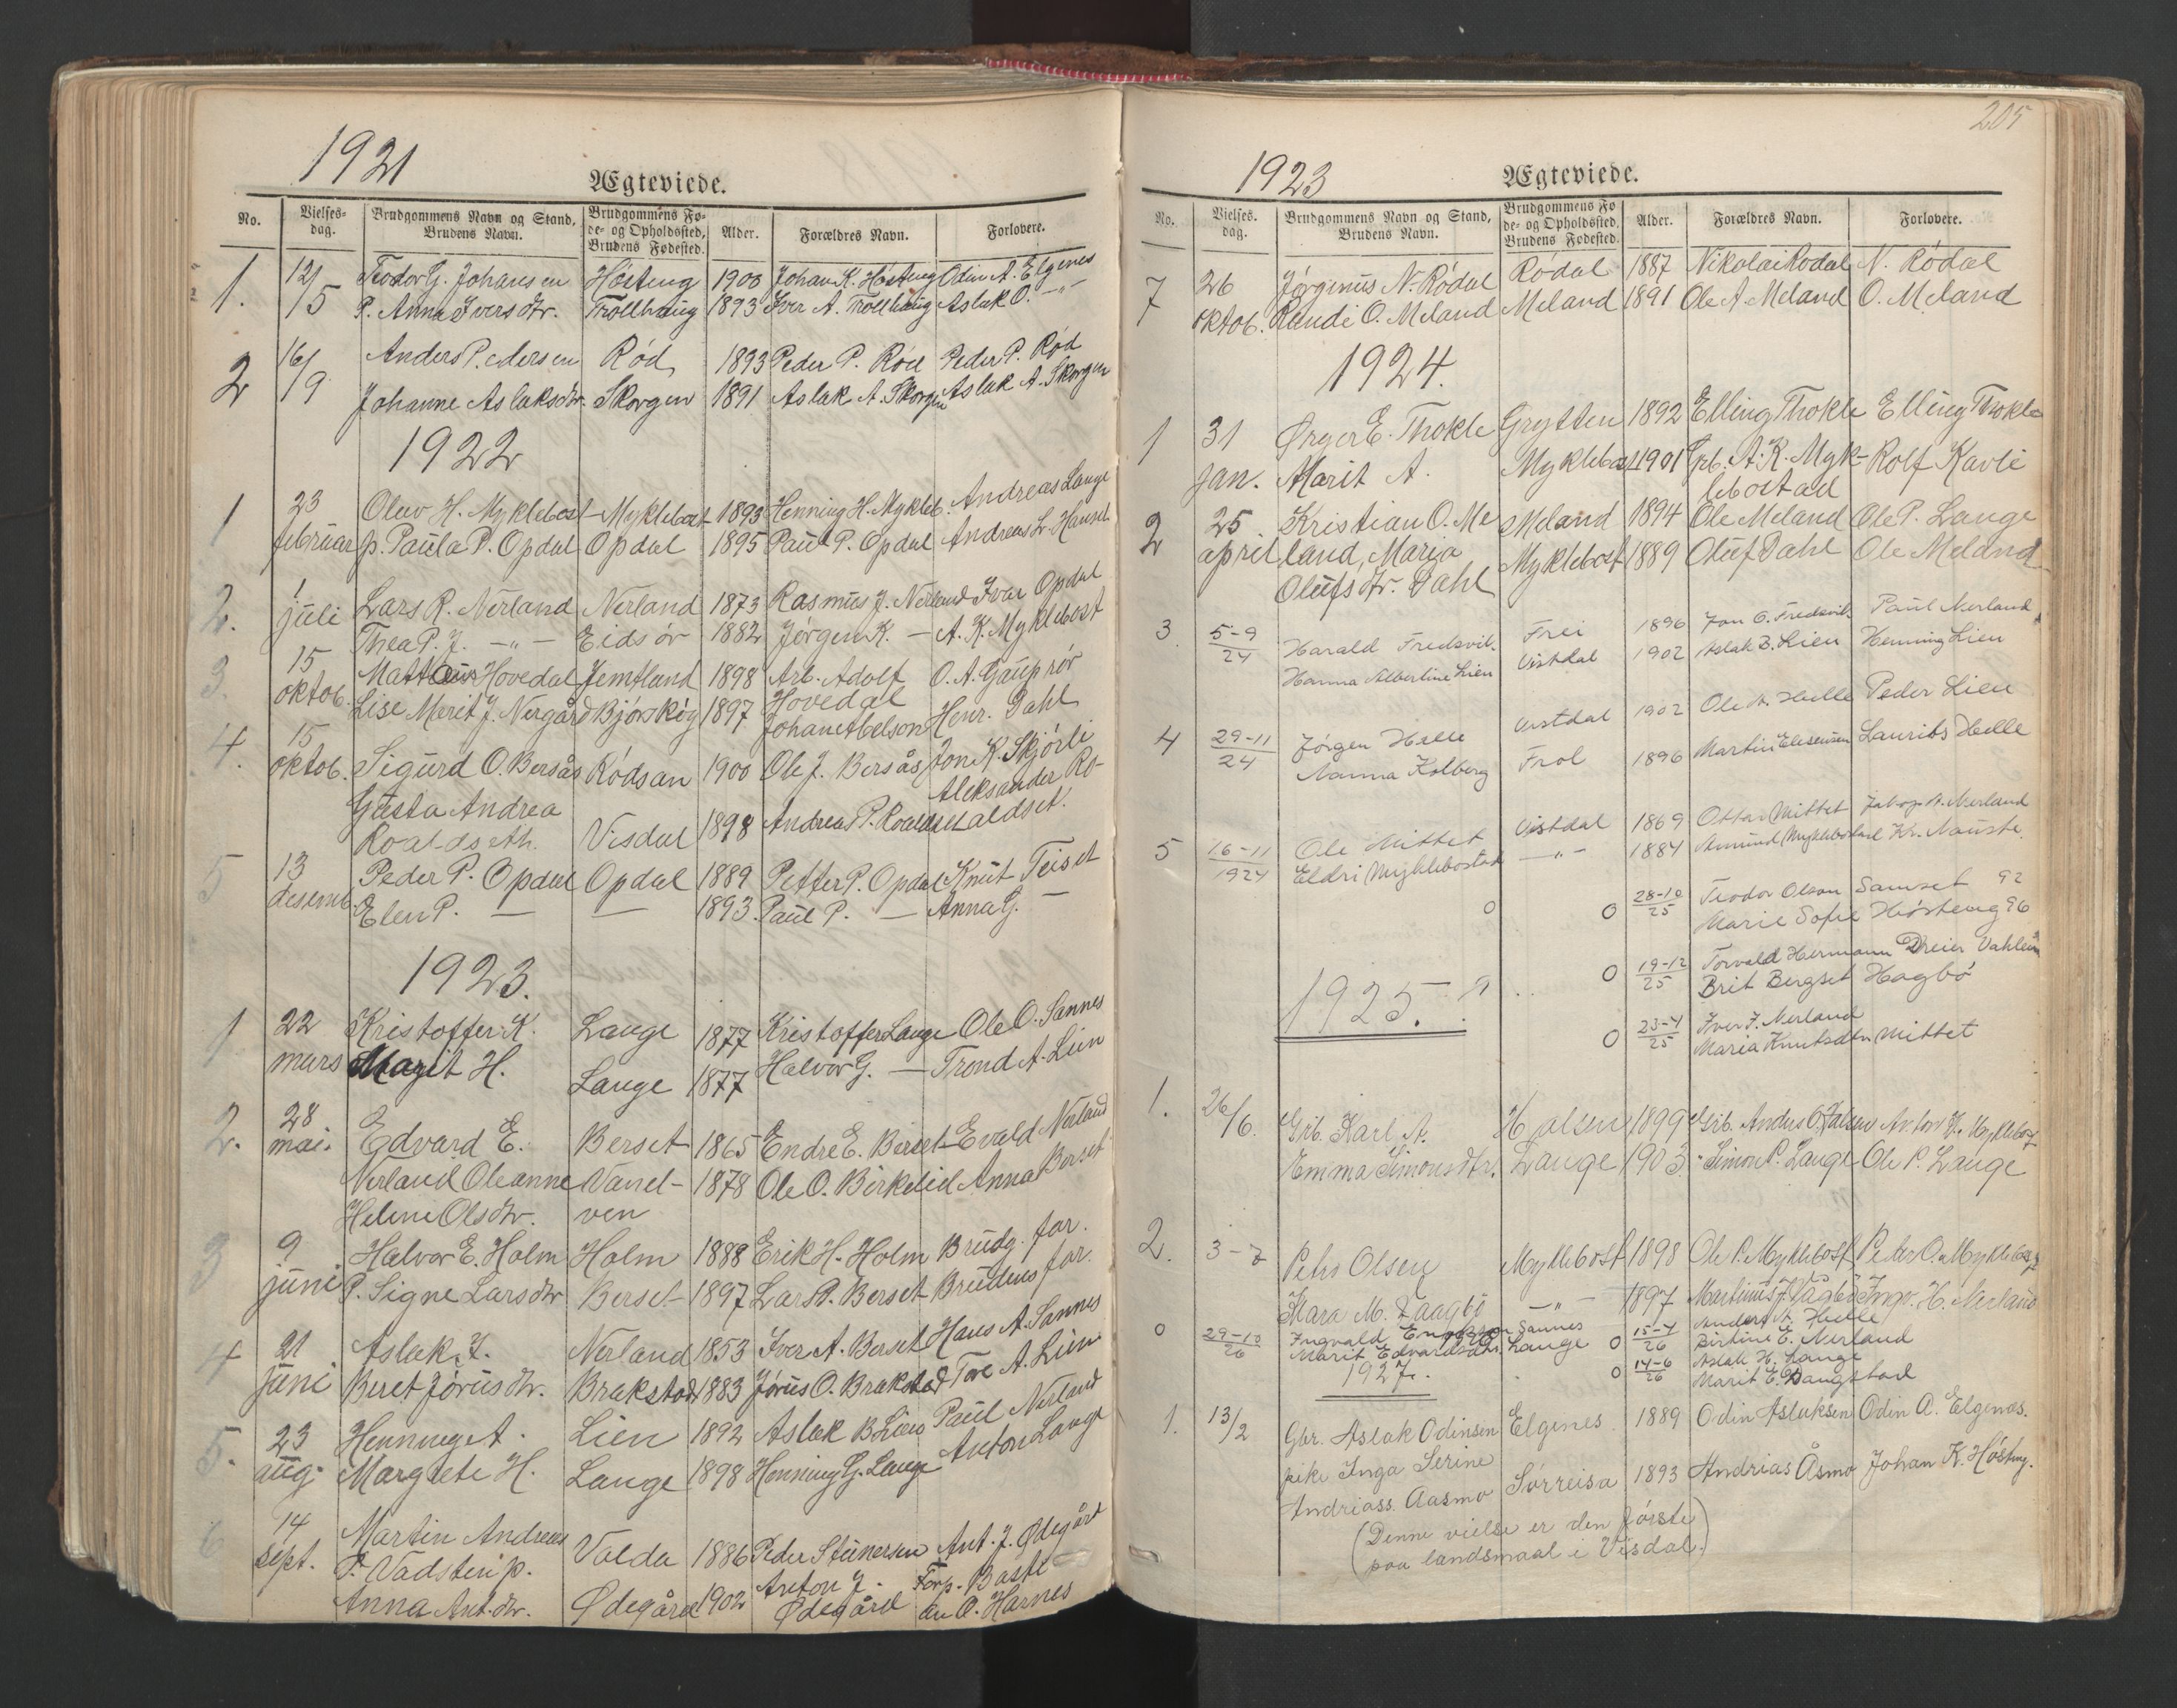 1921
Ægteviede.
No.
Vielses-
dag.
Brudgommens Navn og Stand,
Brudens Navn.
Brudgommens Fø-
de- og Opholdssted,
Brudens Fødested.
Alder.
Forældres Navn.
Forlovere.
1. 12/5 Teodor G. Johansen Høsteng 1900 Johan K. Høsteng Odin A. Elgenes
P. Anna Iversdtr. Trollhaug 1893 Iver A. Trollhaug Aslak O. -"-
2 16/9 Anders Pedersen Rød 1893 Peder P. Rød Peder P. Rød
Johanne Aslaksdtr. Skorgen 1891 Aslak A. Skorgen Aslak A. Skorgen
1922
1 23 Olav H. Myklebost Myklebost 1893 Henning H. Mykleb. Andreas Lange
februar p. Paula P. Opdal Opdal 1895 Paul P. Opdal Andreas L. Hansen
2. 1 juli Lars R. Nerland Nerland 1873 Rasmus J. Nerland Ivar Opdal
Thea P. J. -"- Eidsør 1882 Jørgen K. — A. K. Myklebost
3. 15 Mattæus Hovedal Jemtland 1898 Arb. Adolf O. A. Gauprør
oktob. Hovedal
Lise Marit J. Nergård Bjørskog 1897 Johan Abelson Henr. Dahl
4. 15
oktob. Sigurd O. Bersås Rødsan 1900 Ole J. Bersås Jon K. Skjørli
Gusta Andrea Aleksander Ro-
Roaldseth. Visdal 1898 Andreas P. Roaldset aldset.
5 13 Peder P. Opdal Opdal 1889 Petter P. Opdal Knut Teiset
desemb. Elen P. — — 1893 Paul P. — Anna G. —
1923.
1 22 Kristoffer K. Lange 1877 Kristoffer Lange Ole O. Sannes
mars Marit H. Lange 1877 Halvor G. — Trond A. Lien
2. 28
mai. Edvard E. Berset 1865 Endre E. Berset Evald Nerland
Nerland Oleanne Vanel- 1878 Ole O. Birkelid Anna Berset
Helene Olsdtr. ven
3 9 Halvor E. Holm Holm 1888 Erik H. Holm Brudg. far.
juni P. Signe Larsdtr Berset 1897 Lars P. Berset Brudens far.
4 21 Aslak I. Nerland 1853 Iver A. Berset Hans A. Sannes
juni Beret Jørusdtr. Brakstad 1883 Jørus O. Brakstad Tore A. Lien
5. 23 Henning A. Lien 1892 Aslak B Lien Paul Nerland
aug. Margrete H. Lange 1898 Henning G. Lange Anton Lange
6 14 Martin Andreas
sept. P. Vadstein p. Valda 1886 Peder Steinersen Ant. J. Ødegård
Anna Ant.dtr. Ødegård 1902 Anton J. Ødegård
Forp. Baste
an O. Harnes
205
1923
Ægteviede.
No.
Vielses-
dag.
Brudgommens Navn og Stand,
Brudens Navn.
Brudgommens Fø
de- og Opholdssted,
Brudens Fødested.
Alder.
Forældres Navn.
Forlovere.
7 26 Jørginus N. Rødal Rødal 1887 Nikolai Rødal N. Rødal
oktob. Randi O. Meland Meland 1891 Ole A. Meland O. Meland
1924.
1 31 Ørger E. Thokle Grytten 1892 Elling Thokle Elling Thokle
jan. Marit A. Myklebost 1901 Grb. A. K. Myk- Rolf Kavli
lebostad
2 25 Kristian O. Me Meland 1894 Ole Meland Ole P. Lange
april land, Maria Myklebost 1889 Oluf Dahl Ole Meland
Olufsdtr. Dahl
3. 5-9/24 Harald Fredsvik. Frei 1896 Jon O. Fredsvik. Paul Nerland
Hanna Albertine Lien Vistdal 1902 Aslak B. Lien Henning Lien
4 29-11/24 Jørgen Helle Vistdal 1902 Ole A. Helle Peder Lien
Nanna Kolberg Frol 1896 Martin Eliseusen Laurits Helle
5 16-11/1924 Ole Mittet Vistdal 1869 Ottar Mittet Jakop A. Nerland
Eldri Myklebostad -"- 1884 Amund Myklebostad Kr. Nauste.
o
o 28-10/25 Teodor Olson Samset 92
Marie Sofie Høsteng 96
o 19-12/25 Torvald Hermann Dreier Vahlen
Brit Bergset Hagbø
1925.
o 23-4/25 Iver I. Nerland
Maria Knutsdtr. Mittet
1. 26/6. Grb. Karl A. Halsen 1899 Grb. Anders O. Halsen Anton K. Myklebost
Emma Simonsdtr. Lange 1903 " Simon P. Lange Ole P. Lange
2. 3-7 Petro Olsen Myklebost 1898 Ole P. Myklebost Peter O. Myklebost
Mara M. Vaagbø -"- 1897 Martinus J. Vågbø Ingv. H. Nerland
o 29-10/26 Ingvald Engelson Sannes o 15-4/26 Anders A. Helle
Marit Edvardsdtr. Lange Birtine E. Nerland
1927. o 14-6/26 Aslak H. Lange
Marit E. Dangstad
1. 13/2 Gbr. Aslak Odinsen Elgenes. 1889 Odin Aslaksen Odin A. Elgenæs.
pike Inga Serine
Andriass. Aasmo Sørreisa 1893 Andrias Åsmo Johan K. Høsteng.
(Denne vielse er den første
paa landsmaal i Visdal.)